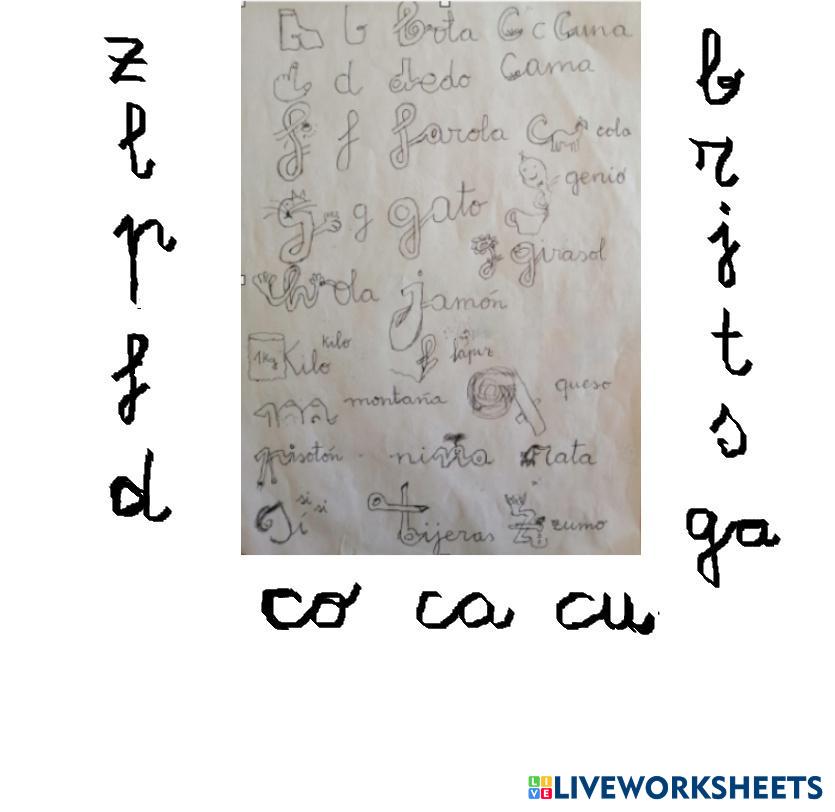 z
l
p
f
d
b b Bota C c Cuna
d dedo Cama
f f farola C cola
genio
g g gato
g girasol
h hola jamón
1 Kg Kilo kilo
l lápiz
montaña queso
pisotón niña rata
Sí si si tijeras zumo
b
r
j
t
s
ga
co ca cu
LIVEWORKSHEETS